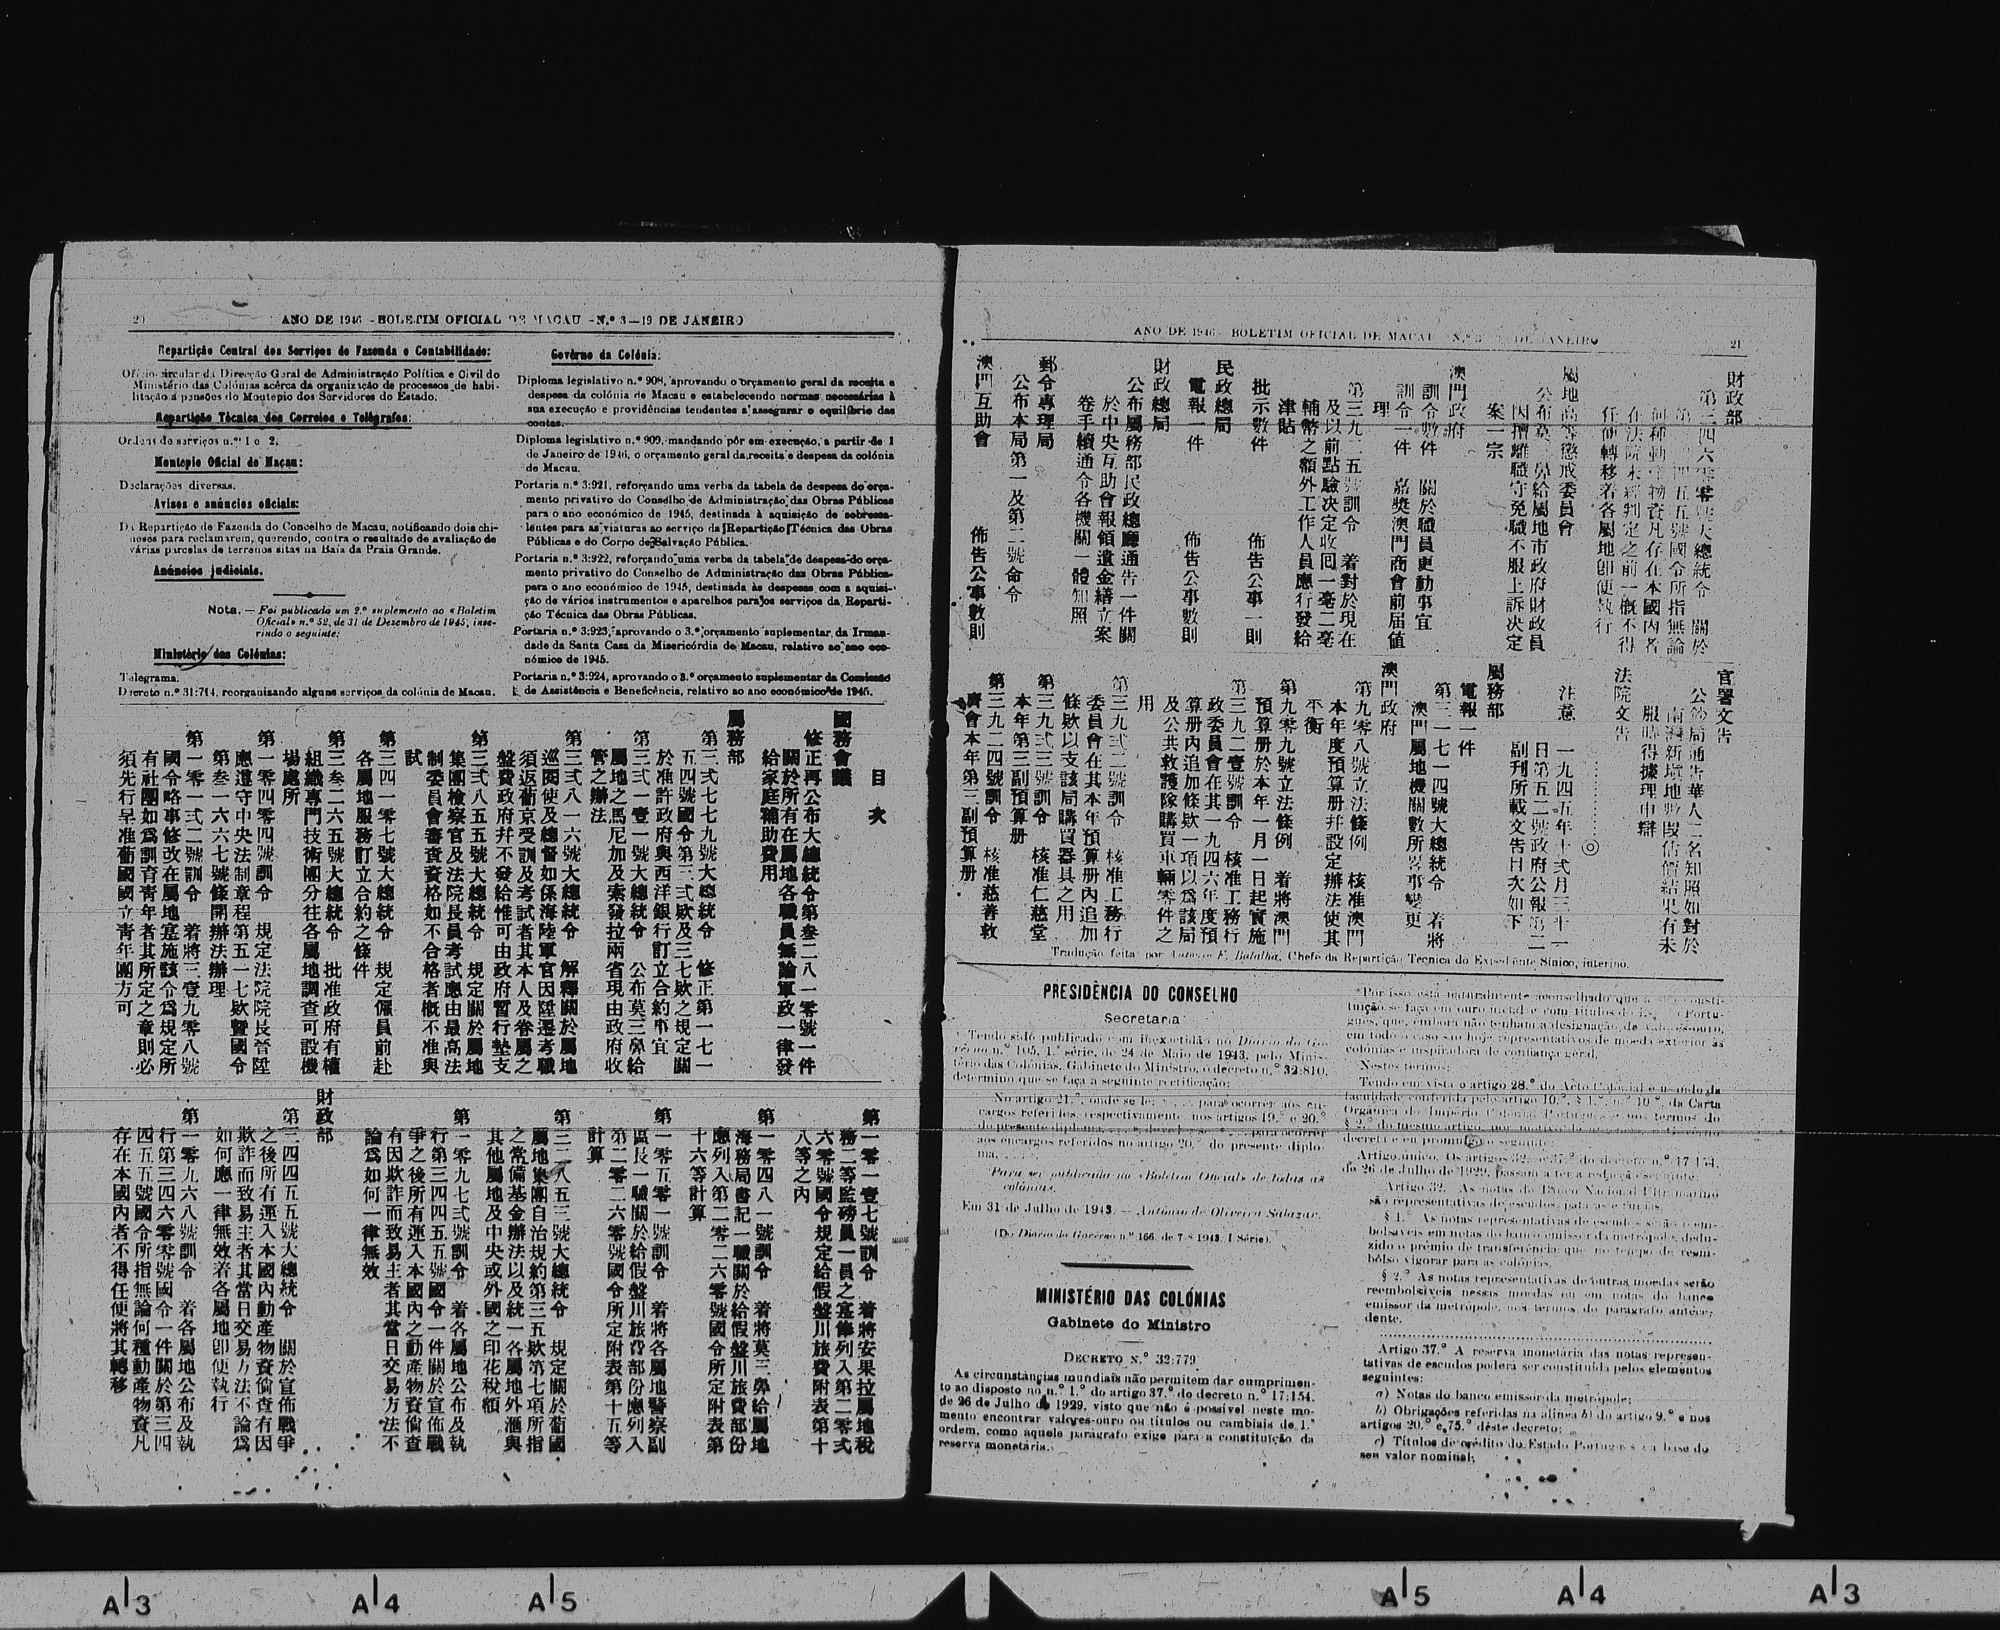 20
ANO DE 1946 - BOLETIM OFICIAL DE MACAU - N.º 3 — 19 DE JANEIRO
Repartição Central dos Serviços de Fazenda e Contabilidade:
Ofício-circular da Direcção Geral de Administração Política e Civil do
Ministério das Colónias acêrca da organização de processos de habi-
litação a pensões do Montepio dos Servidores do Estado.
Repartição Técnica dos Correios e Telégrafos:
Ordens de serviços n.ºs 1 e 2.
Montepio Oficial de Macau:
Declarações diversas.
Avisos e anúncios oficiais:
Da Repartição de Fazenda do Concelho de Macau, notificando dois chi-
neses para reclamarem, querendo, contra o resultado de avaliação de
várias parcelas de terrenos sitas na Baía da Praia Grande.
Anúncios judiciais.
Nota. — Foi publicado um 2.º suplemento ao «Boletim
Oficial» n.º 52, de 31 de Dezembro de 1945, inse-
rindo o seguinte:
Ministério das Colónias:
Telegrama.
Decreto n.º 31:714, reorganizando alguns serviços da colónia de Macau.
Govêrno da Colónia:
Diploma legislativo n.º 908, aprovando o orçamento geral da receita e
despesa da colónia de Macau e estabelecendo normas necessárias à
sua execução e providências tendentes a assegurar o equilíbrio das
contas.
Diploma legislativo n.º 909, mandando pôr em execução, a partir de 1
de Janeiro de 1946, o orçamento geral da receita e despesa da colónia
de Macau.
Portaria n.º 3:921, reforçando uma verba da tabela de despesa do orça-
mento privativo do Conselho de Administração das Obras Públicas
para o ano económico de 1945, destinada à aquisição de sobressa-
lentes para as viaturas ao serviço da Repartição Técnica das Obras
Públicas e do Corpo de Salvação Pública.
Portaria n.º 3:922, reforçando uma verba da tabela de despesa do orça-
mento privativo do Conselho de Administração das Obras Públicas
para o ano económico de 1945, destinada às despesas com a aquisi-
ção de vários instrumentos e aparelhos para os serviços da Reparti-
ção Técnica das Obras Públicas.
Portaria n.º 3:923, aprovando o 3.º orçamento suplementar da Irman-
dade da Santa Casa da Misericórdia de Macau, relativo ao ano eco-
nómico de 1945.
Portaria n.º 3:924, aprovando o 3.º orçamento suplementar da Comissão
de Assistência e Beneficência, relativo ao ano económico de 1945.
目次
國務會議
修正再公布大總統令第叁二八一零號一件
關於所有在屬地各職員無論軍政一律發
給家庭補助費用
屬務部
第三弍七七九號大總統令 修正第一七一
五四號國令第三弍欵及三七欵之規定關
於准許政府與西洋銀行訂立合約事宜
第三弍一壹一號大總統令 公布莫三鼻給
屬地之馬尼加及索發拉兩省現由政府收
管之辦法
第三弍八一六號大總統令 解釋關於屬地
巡閱使及總督如係海陸軍官因陞遷考職
須返葡京受訓及考試者其本人及眷屬之
盤費政府幷不發給惟可由政府暫行墊支
第三弍八五五號大總統令 規定關於屬地
集團檢察官及法院長員考試應由最高法
制委員會審查資格如不合格者概不准與
試
第三四一零七號大總統令 規定僱員前赴
各屬地服務訂立合約之條件
第三叁二六五號大總統令 批准政府有權
組織專門技術團分往各屬地調查可設機
場處所
第一零四零四號訓令 規定法院院長晉陞
應遵守中央法制章程第五一七欵曁國令
第叁一六六七號條開辦法辦理
第一零一弍二號訓令 着將三壹九零八號
國令略事修改在屬地寔施該令爲規定所
有社團如爲訓育靑年者其所定之章則必
須先行呈准葡國國立靑年團方可
第一零一壹七號訓令 着將安果拉屬地稅
務二等監磅員一員之寔俸列入第二零弍
六零號國令規定給假盤川旅費附表第十
八等之內
第一零四八一號訓令 着將莫三鼻給屬地
海務局書記一職關於給假盤川旅費部份
應列入第二零二六零號國令所定附表第
十六等計算
第一零五零一號訓令 着將各屬地警察副
區長一職關於給假盤川旅費部份應列入
第二零二六零號國令所定附表第十五等
計算
第三二八五三號大總統令 規定關於葡國
屬地集團自治規約第三五欵第七項所指
之常備基金辦法以及統一各屬地外滙與
其他屬地及中央或外國之印花稅額
第一零九七弍號訓令 着各屬地公布及執
行第三四四五五號國令一件關於宣佈戰
爭之後所有運入本國內之動產物資倘查
有因欺詐而致易主者其當日交易方法不
論爲如何一律無效
財政部
第三四四五五號大總統令 關於宣佈戰爭
之後所有運入本國內動產物資倘查有因
欺詐而致易主者其當日交易方法不論爲
如何應一律無效着各屬地卽便執行
第一零九六八號訓令 着各屬地公布及執
行第三四六零零號國令一件關於第三四
四五五號國令所指無論何種動產物資凡
存在本國內者不得任便將其轉移
ANO DE 1946 - BOLETIM OFICIAL DE MACAU - N.º 3 DE JANEIRO
21
財政部
第三四六零零號大總統令 關於
第三四四五五號國令所指無論
何種動產物資凡存在本國內者
在法院未經判定之前一概不得
任便轉移着各屬地卽便執行
屬地高等懲戒委員會
公布莫三鼻給屬地市政府財政員
因擅離職守免職不服上訴決定
案一宗
澳門政府
訓令數件 關於職員更動事宜
訓令一件 嘉獎澳門商會前屆値
理
第三九二五號訓令 着對於現在
及以前點驗决定收囘一毫二毫
輔幣之額外工作人員應行發給
津貼
批示數件 佈告公事一則
民政總局
電報一件 佈告公事數則
財政總局
公布屬務部民政總廳通告一件關
於中央互助會報領遺金繕立案
卷手續通令各機關一體知照
郵令專理局
公布本局第一及第二號命令
澳門互助會 佈告公事數則
官署文告
公鈔局通告華人二名知照如對於
南灣新塡地數段估價結果有未
服時得據理申辯
法院文告
注意 一九四五年十弍月三十一
日第五二號政府公報第二
副刊所載文告目次如下
屬務部
電報一件
第三一七一四號大總統令 着將
澳門屬地機關數所畧事變更
澳門政府
第九零八號立法條例 核准澳門
本年度預算册幷設定辦法使其
平衡
第九零九號立法條例 着將澳門
預算册於本年一月一日起實施
第三九二壹號訓令 核准工務行
政委員會在其一九四六年度預
算册內追加條欵一項以爲該局
及公共救護隊購買車輛零件之
用
第三九弍二號訓令 核准工務行
委員會在其本年預算册內追加
條欵以支該局購買器具之用
第三九弍三號訓令 核准仁慈堂
本年第三副預算册
第三九二四號訓令 核准慈善救
濟會本年第三副預算册
Tradução feita por António F. Batalha, Chefe da Repartição Técnica do Expediente Sínico, interino.
PRESIDÊNCIA DO CONSELHO
Secretaria
Tendo sido publicado com inexactidão no Diário do Go-
vêrno n.º 105, 1.ª série, de 24 de Maio de 1943, pelo Minis-
tério das Colónias, Gabinete do Ministro, o decreto n.º 32:810,
determino que se faça a seguinte rectificação:
No artigo 21.º, onde se lê: para ocorrer aos en-
cargos referidos, respectivamente, nos artigos 19.º e 20.º
do presente diploma, deve ler-se: para ocorrer
aos encargos referidos no artigo 20.º do presente diplo-
ma.
Para ser publicada no «Boletim Oficial» de todas as
colónias.
Em 31 de Julho de 1943. — António de Oliveira Salazar.
(Do Diário do Govêrno n.º 166, de 7-8-1943, I Série).
MINISTÉRIO DAS COLÓNIAS
Gabinete do Ministro
DECRETO N.º 32:779
As circunstâncias mundiais não permitem dar cumprimen-
to ao disposto no n.º 1.º do artigo 37.º do decreto n.º 17:154,
de 26 de Julho de 1929, visto que não é possível neste mo-
mento encontrar valores-ouro ou títulos ou cambiais de 1.ª
ordem, como aquele parágrafo exige para a constituição da
reserva monetária.
Por isso está naturalmente aconselhado que a consti-
tuïção se faça em ouro metal e com títulos do Portu-
guês, que, embora não tenham a designação de valores-ouro,
em todo o caso são hoje representativos de moeda exterior às
colónias e inspiradora de confiança geral.
Nestes termos:
Tendo em vista o artigo 28.º do Acto Colonial e usando da
faculdade conferida pelo artigo 10.º, da Carta
Orgânica do Império Colonial Português, e nos termos do
§ 2.º do mesmo artigo,
decreta e eu promulgo o seguinte:
Artigo único. Os artigos 32.º e 37.º do decreto n.º 17:154,
de 26 de Julho de 1929, passam a ter a redacção seguinte:
Artigo 32.º As notas do Banco Nacional Ultramarino
são representativas de escudos, patacas e rupias.
§ 1.º As notas representativas de escudos serão reem-
bolsáveis em notas do banco emissor da metrópole, dedu-
zido o prémio de transferência que no tempo do reem-
bôlso vigorar para as colónias.
§ 2.º As notas representativas de outras moedas serão
reembolsáveis nessas moedas ou em notas do banco
emissor da metrópole, nos termos do parágrafo antece-
dente.
Artigo 37.º A reserva monetária das notas represen-
tativas de escudos poderá ser constituída pelos elementos
seguintes:
a) Notas do banco emissor da metrópole;
b) Obrigações referidas na alínea b) do artigo 9.º e nos
artigos 20.º e 75.º dêste decreto;
c) Títulos de crédito do Estado Português na base do
seu valor nominal;
A3
A4
A5
A5
A4
A3